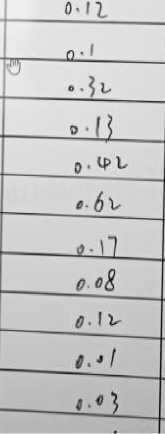 0.12
0.1
0.32
0.13
0.42
0.62
0.17
0.08
0.12
0.01
0.03